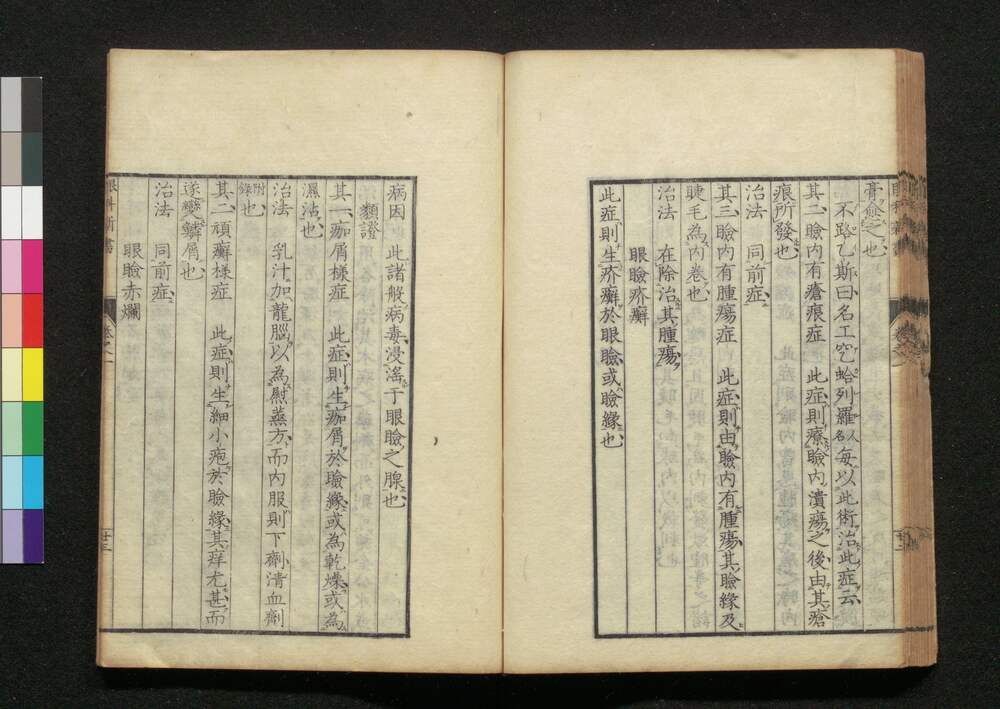 膏愈之也
不路乙斯曰名工空蛤列羅人名每以此術治此症云
其二瞼內有瘡痕症 此症則療瞼內潰瘍之後由其瘡
痕所發也
治法 同前症
其三瞼內有腫瘍症 此症則由瞼內有腫瘍其瞼緣及
睫毛為內卷也
治法 在除治其腫瘍
眼瞼疥癬
此症則生疥癬於眼瞼或瞼緣也
病因 此諸般病毒浸淫于眼瞼之腺也
類證
其一痂屑樣症 此症則生痂屑於瞼緣或為乾燥或為
濕沾也
治法 乳汁加龍腦以為慰蒸方而內服則下劑清血劑
附錄也
其二頑癬樣症 此症則生細小疱於瞼緣其痒尤甚而
遂變鱗屑也
治法 同前症
眼瞼赤爛
眼科新書
卷之一
廿三